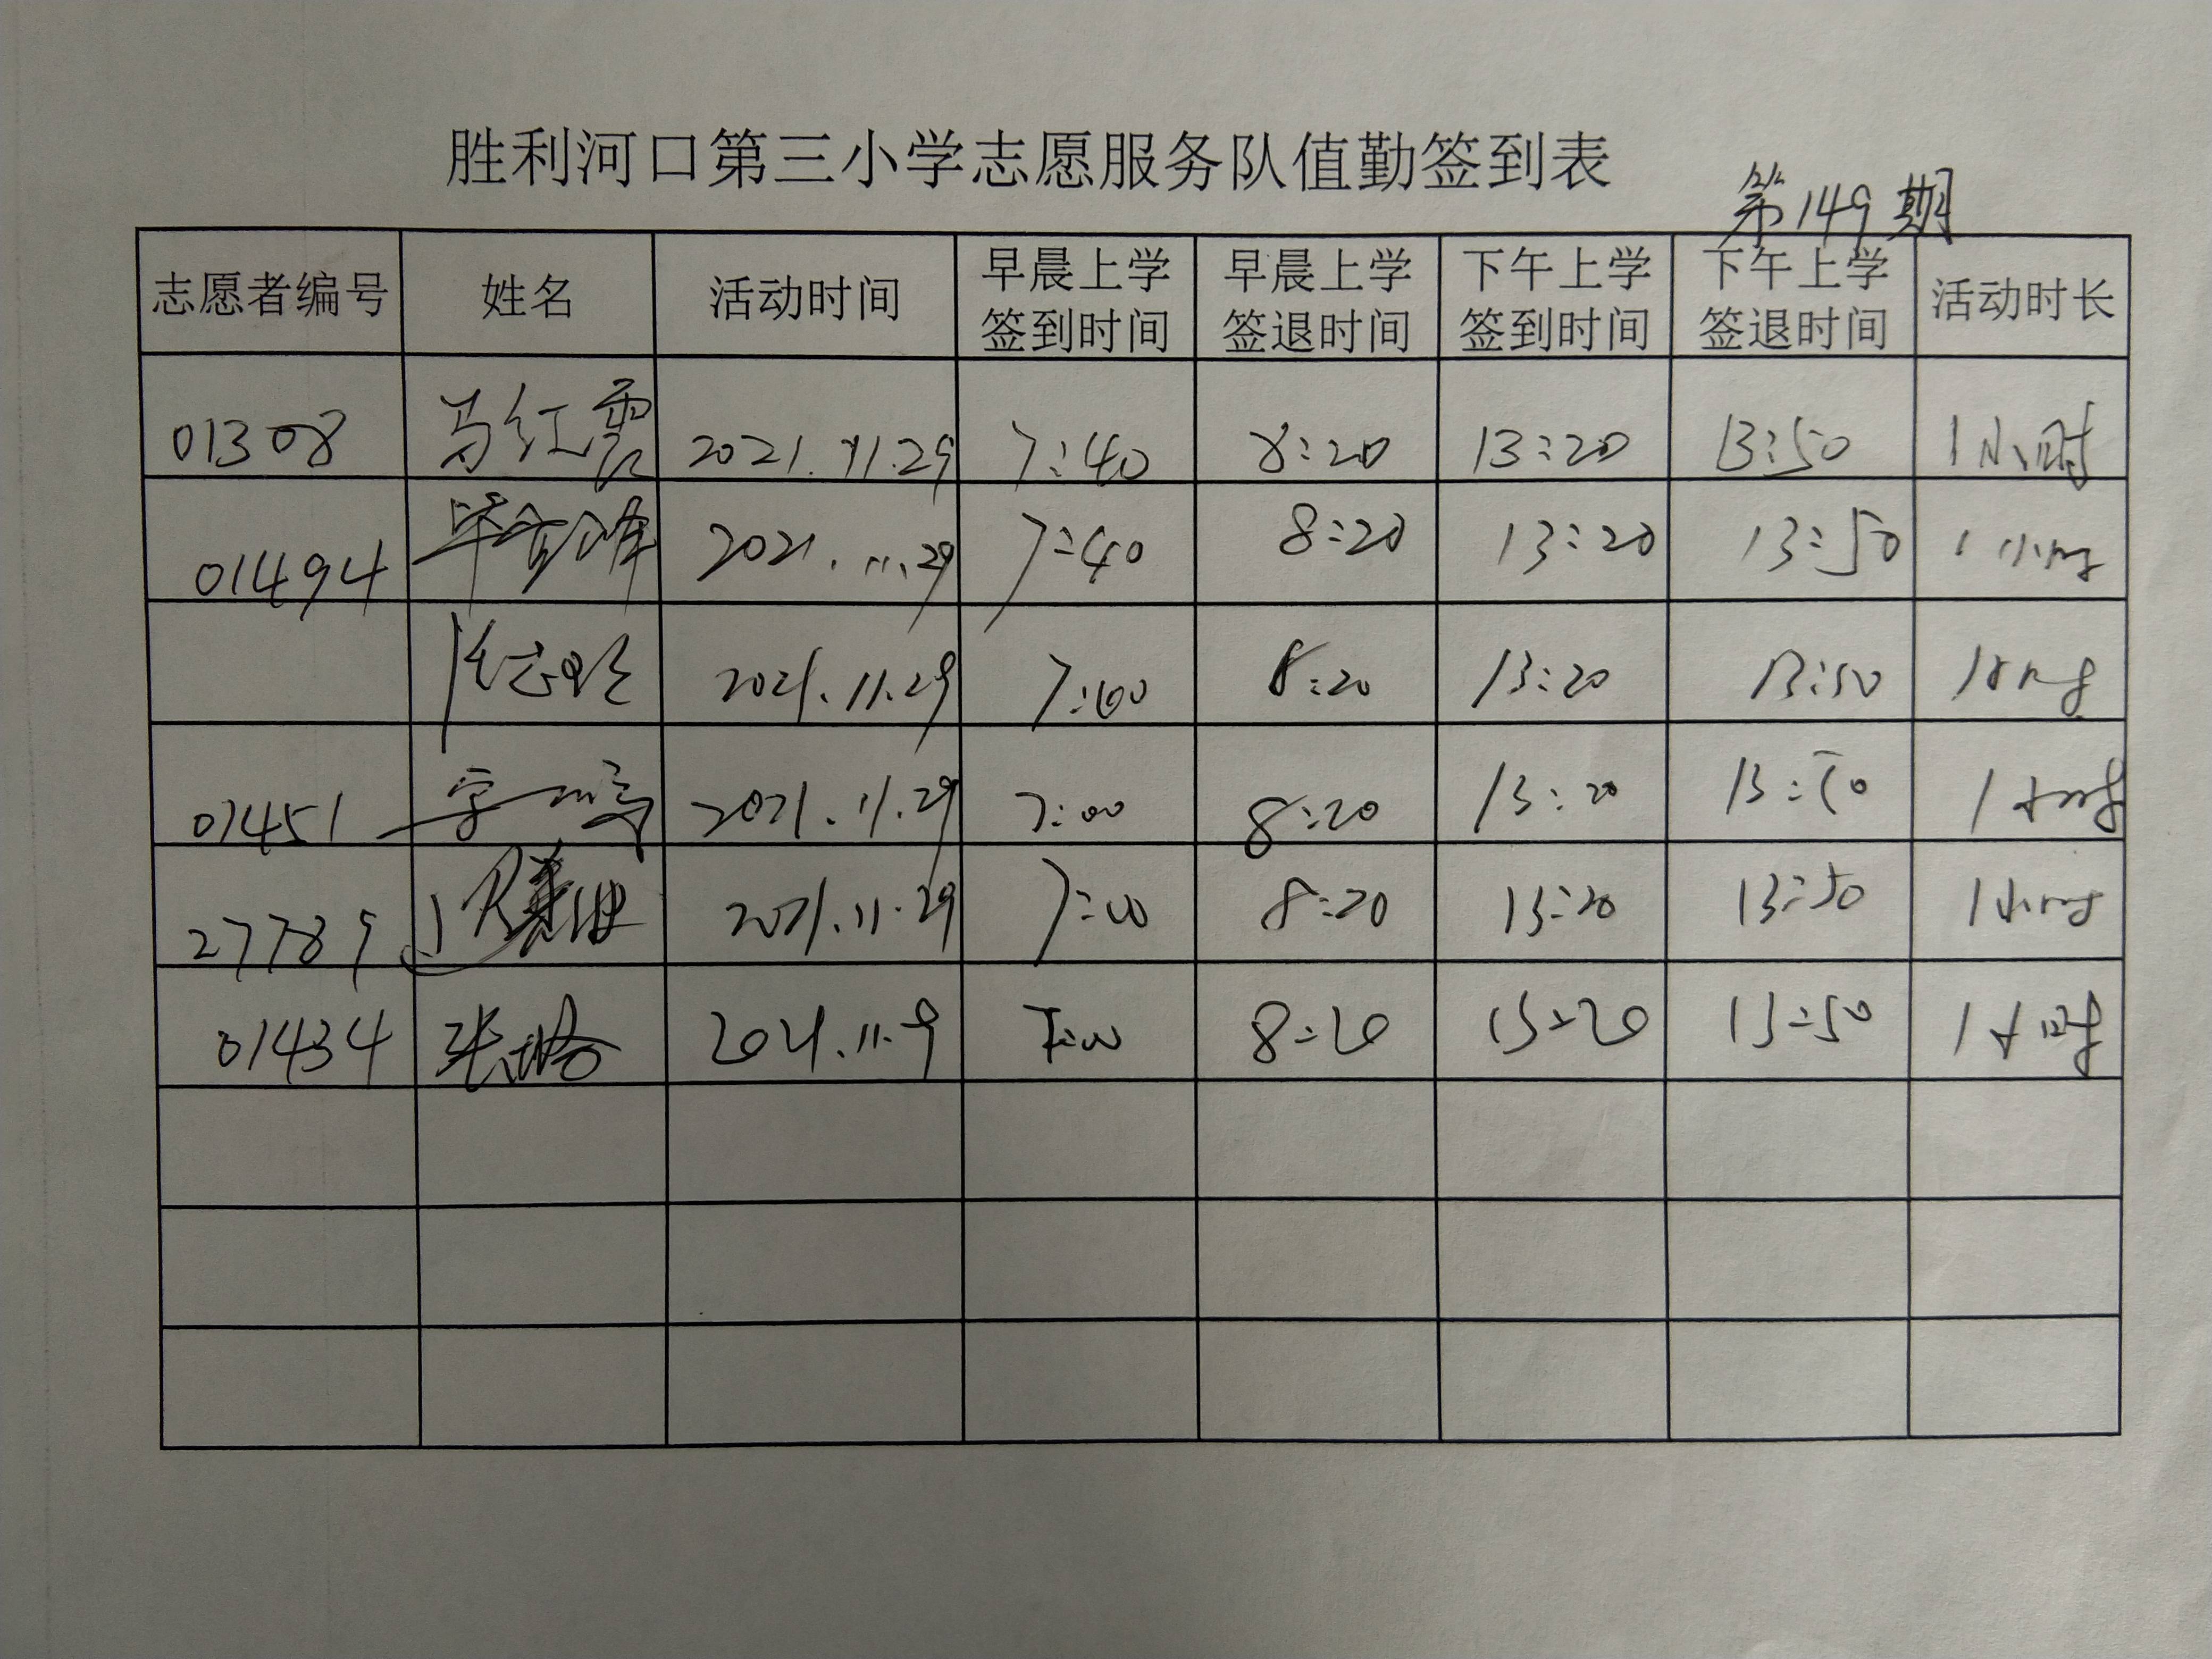 胜利河口第三小学志愿服务队值勤签到表
第149期
志愿者编号 姓名 活动时间 早晨上学签到时间 早晨上学签退时间 下午上学签到时间 下午上学签退时间 活动时长
01308 马红霞 2021.11.29 7:40 8:20 13:20 13:50 1小时
01494 2021.11.29 7:40 8:20 13:20 13:50 1小时
2021.11.29 7:00 8:20 13:20 13:50 1小时
01451 2021.11.29 7:00 8:20 13:20 13:50 1小时
27789 2021.11.29 7:00 8:20 13:20 13:50 1小时
01434 张 2021.11.9 7:00 8:20 13:20 13:50 1小时